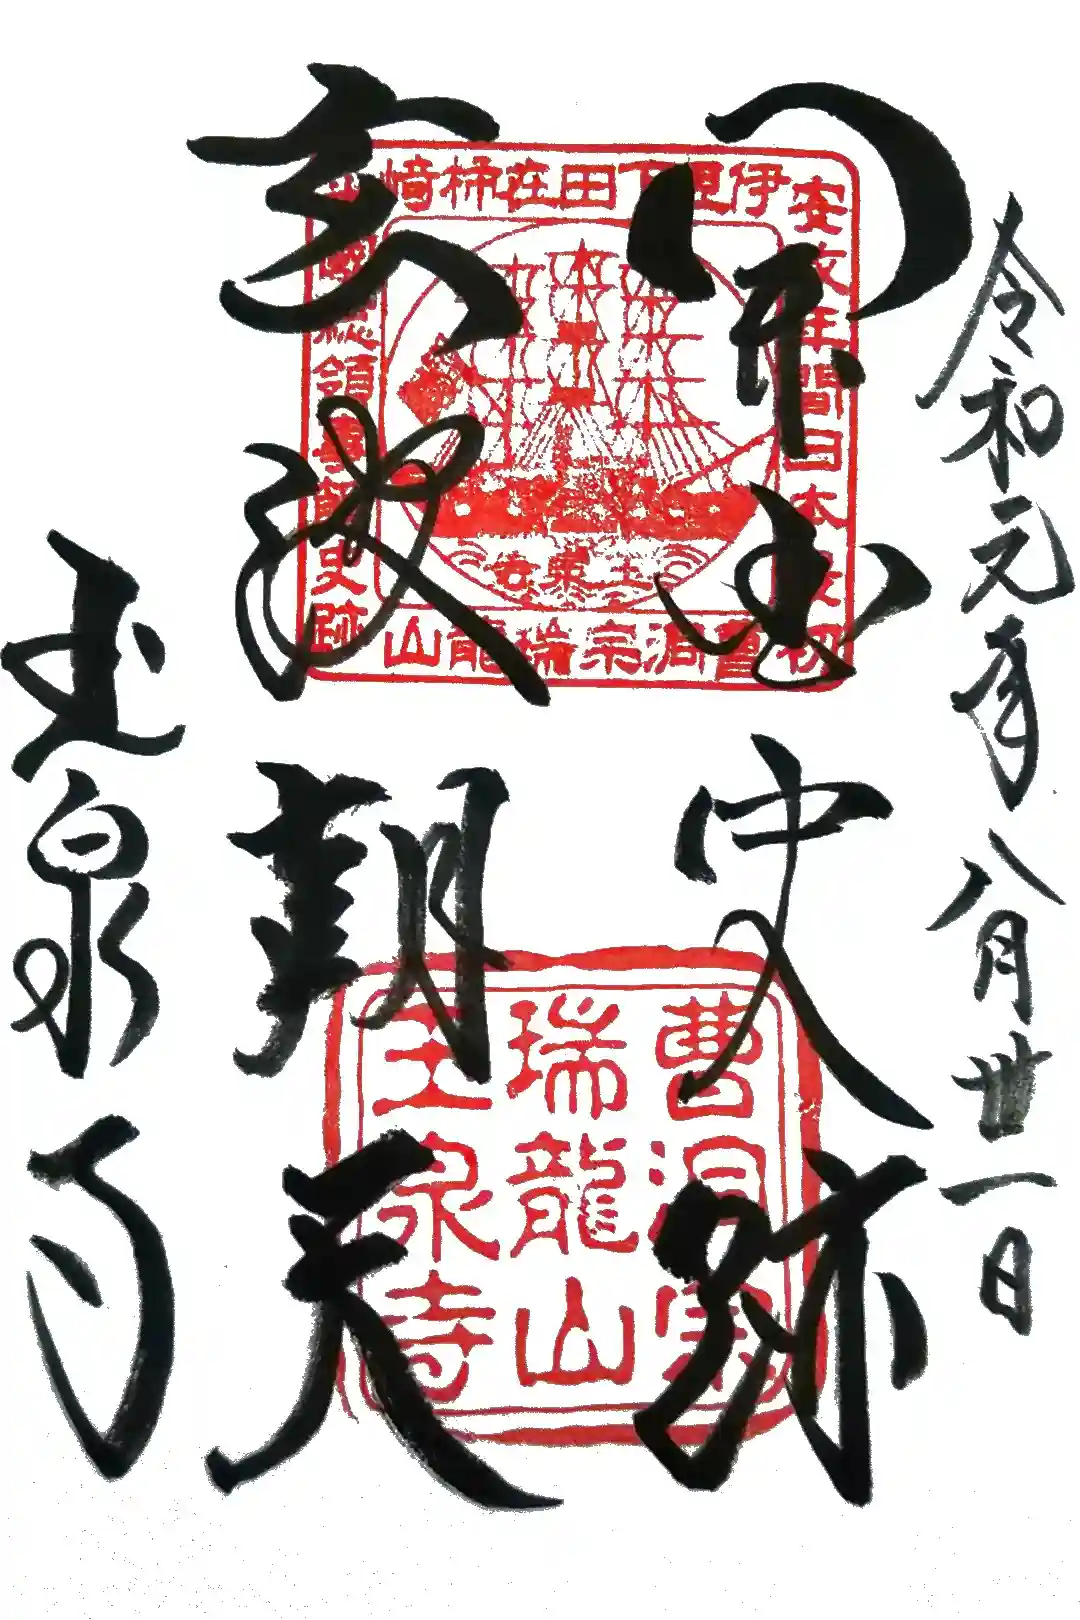 令和元年八月卅一日
開国史跡
朝天
玉泉寺
伊豆下田在柿﨑
安政年間日本最初
國總領事館史跡
曹洞宗瑞龍山
曹洞宗
瑞龍山
玉泉寺